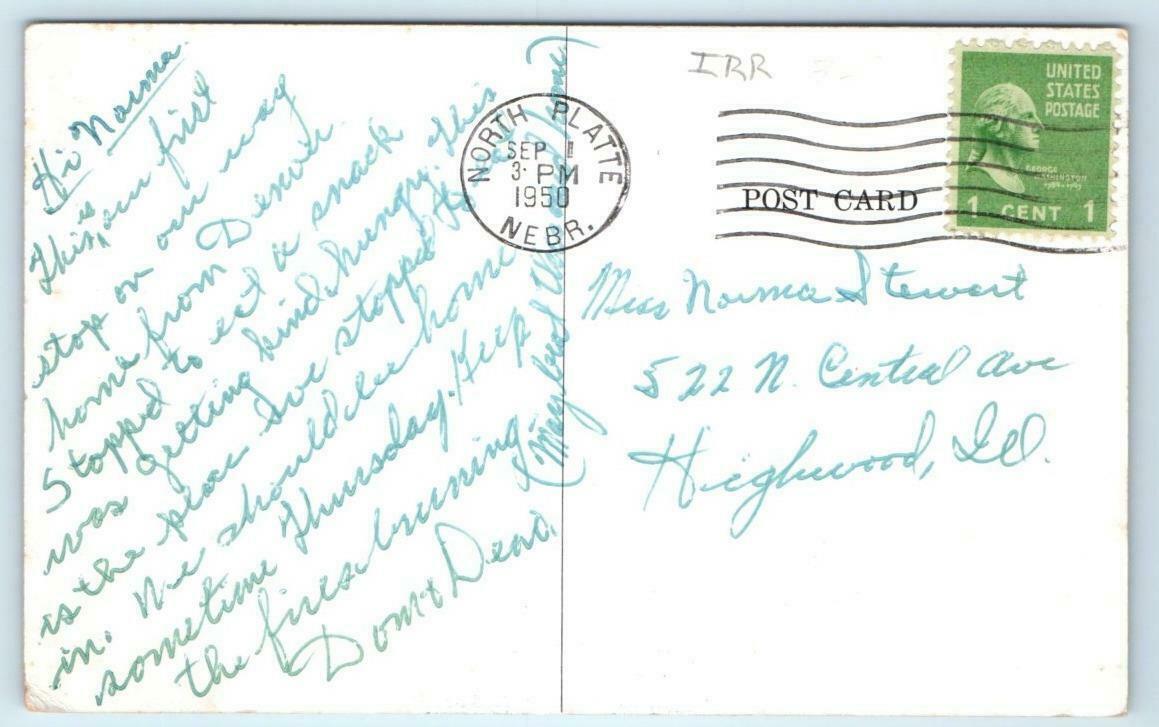 Hi Norma
This is our first
stop on our way
home from Denver.
Stopped to eat a snack
was getting kind hungry. This
is the place we stopped
in. We should be home
sometime Thursday. Keep
the fires burning
Dom & Dew.
NORTH PLATTE
SEP 1
3 PM
1950
NEBR.
IRR
UNITED
STATES
POSTAGE
GEORGE
WASHINGTON
1789-1797
1 CENT 1
POST CARD
Miss Norma Stewart
522 N. Central Ave
Highwood, Ill.